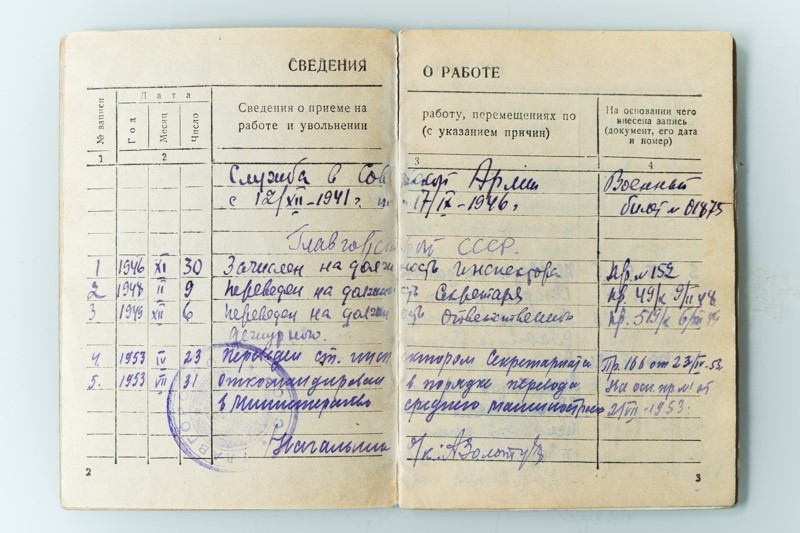 СВЕДЕНИЯ О РАБОТЕ
№ записи
Дата
Год
Месяц
Число
Сведения о приеме на работу, перемещениях по
работе и увольнении (с указанием причин)
На основании чего
внесена запись
(документ, его дата
и номер)
1 2 3 4
Служба в Советской Армии Военный
с 12/XII-1941г. по 17/IX-1946г. билет № 01875
СССР.
1 1946 XI 30 Зачислен на должность инспектора Пр. № 152
2 1948 II 9 Переведен на должность Секретаря Пр. 49/к 9/II 48
3 1949 XII 6 Переведен на должность Ответственного Пр. 519/к 6/XII 49
дежурного.
4. 1953 IV 23 Переведен ст. инспектором Секретариата Пр. 166 от 23/IV-53
5. 1953 VII 31 Откомандирован в порядке перевода На осн. пр. № от
в Министерство среднего машиностроен 21/VII-1953.
Начальник
2
3